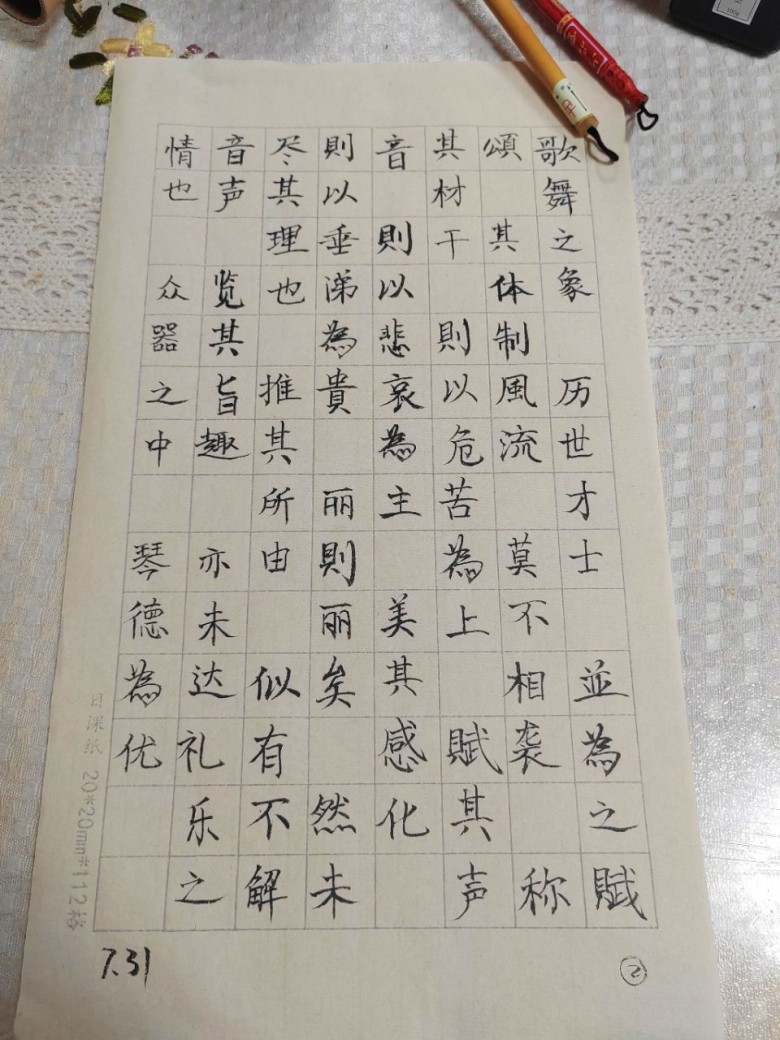 歌舞之象 历世才士 並為之賦
頌 其体制風流 莫不相袭 称
其材干 則以危苦為上 賦其声
音 則以悲哀為主 美其感化
則以垂涕為貴 丽則丽矣 然未
尽其理也 推其所由 似有不解
音声 览其旨趣 亦未达礼乐之
情也 众器之中 琴德為优
日课纸 20*20mm*112格
7.31
②